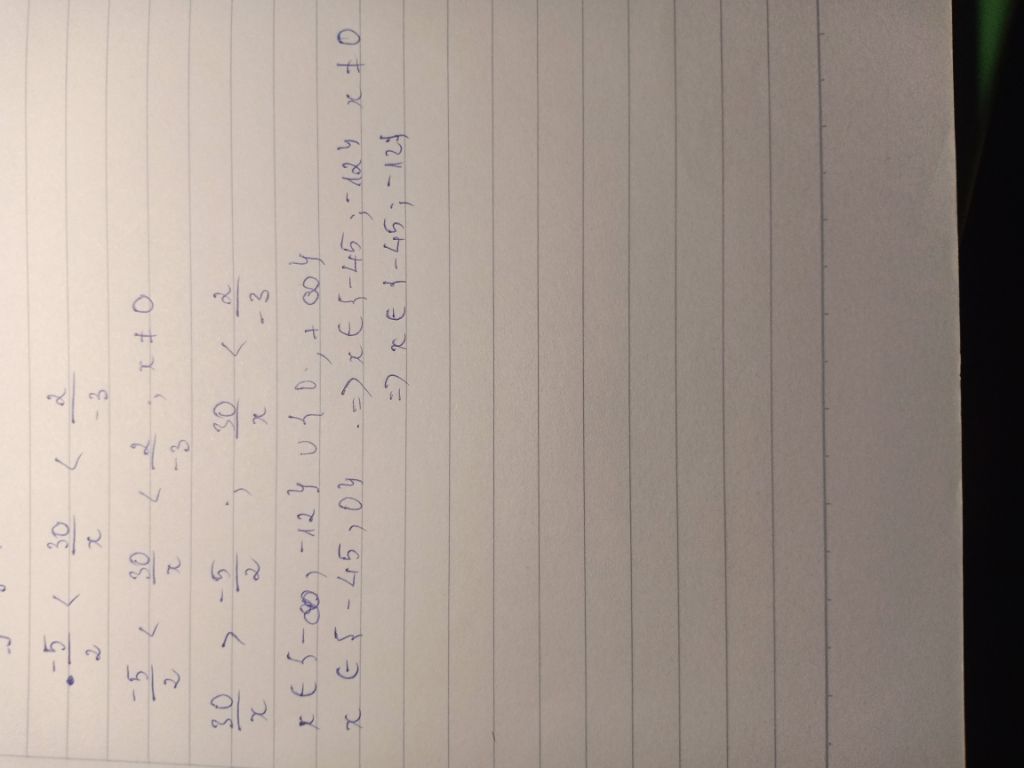 • -5/2 < 30/x < 2/-3
-5/2 < 30/x < 2/-3 ; x ≠ 0
30/x > -5/2 ; 30/x < 2/-3
x ∈ {-∞, -12} ∪ {0, +∞}
x ∈ {-45, 0} => x ∈ {-45; -12} x ≠ 0
=> x ∈ {-45; -12}